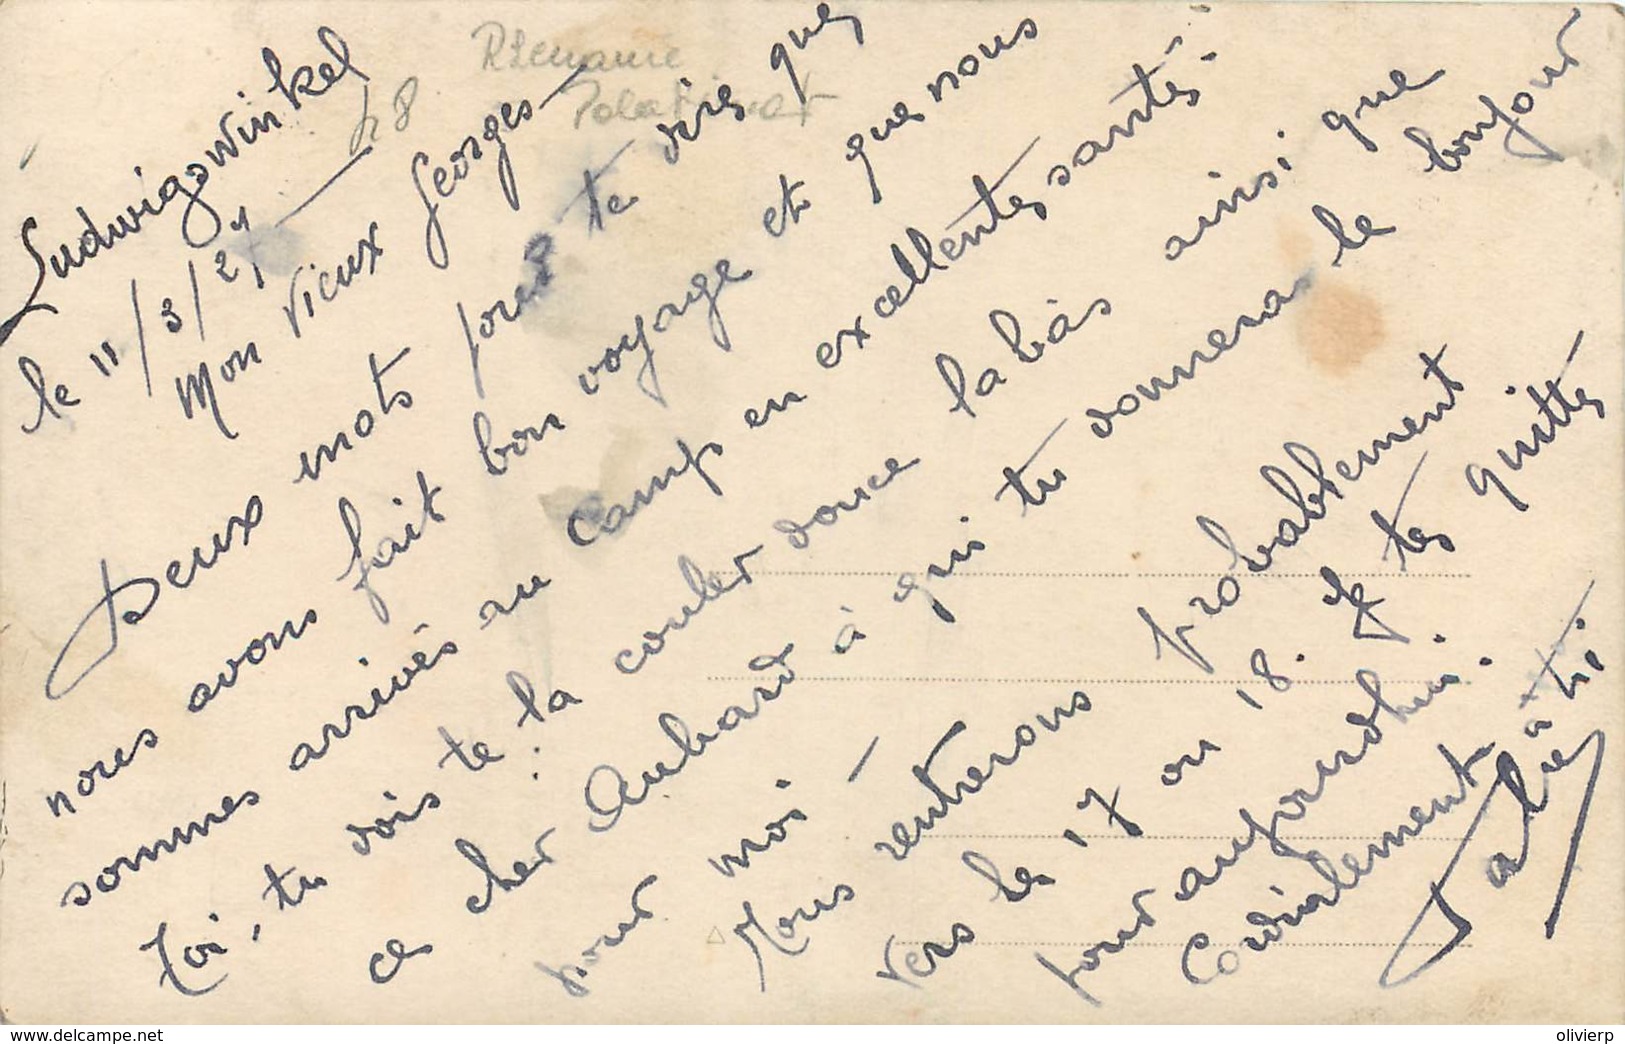 Rhenanie
Palatinat
48
Ludwigswinkel
le 11/3/27
Mon vieux Georges
Deux mots pour te dire que
nous avons fait bon voyage et que nous
sommes arrivés au camp en excellentes santés.
Toi, tu dois te la couler douce la bàs ainsi que
ce cher Aubard à qui tu donneras le bonjour
pour moi –
Nous rentrerons probablement
vers le 17 ou 18. Je te quitte
pour aujourdhui.
Cordialement à toi.
delcampe.net
olivierp